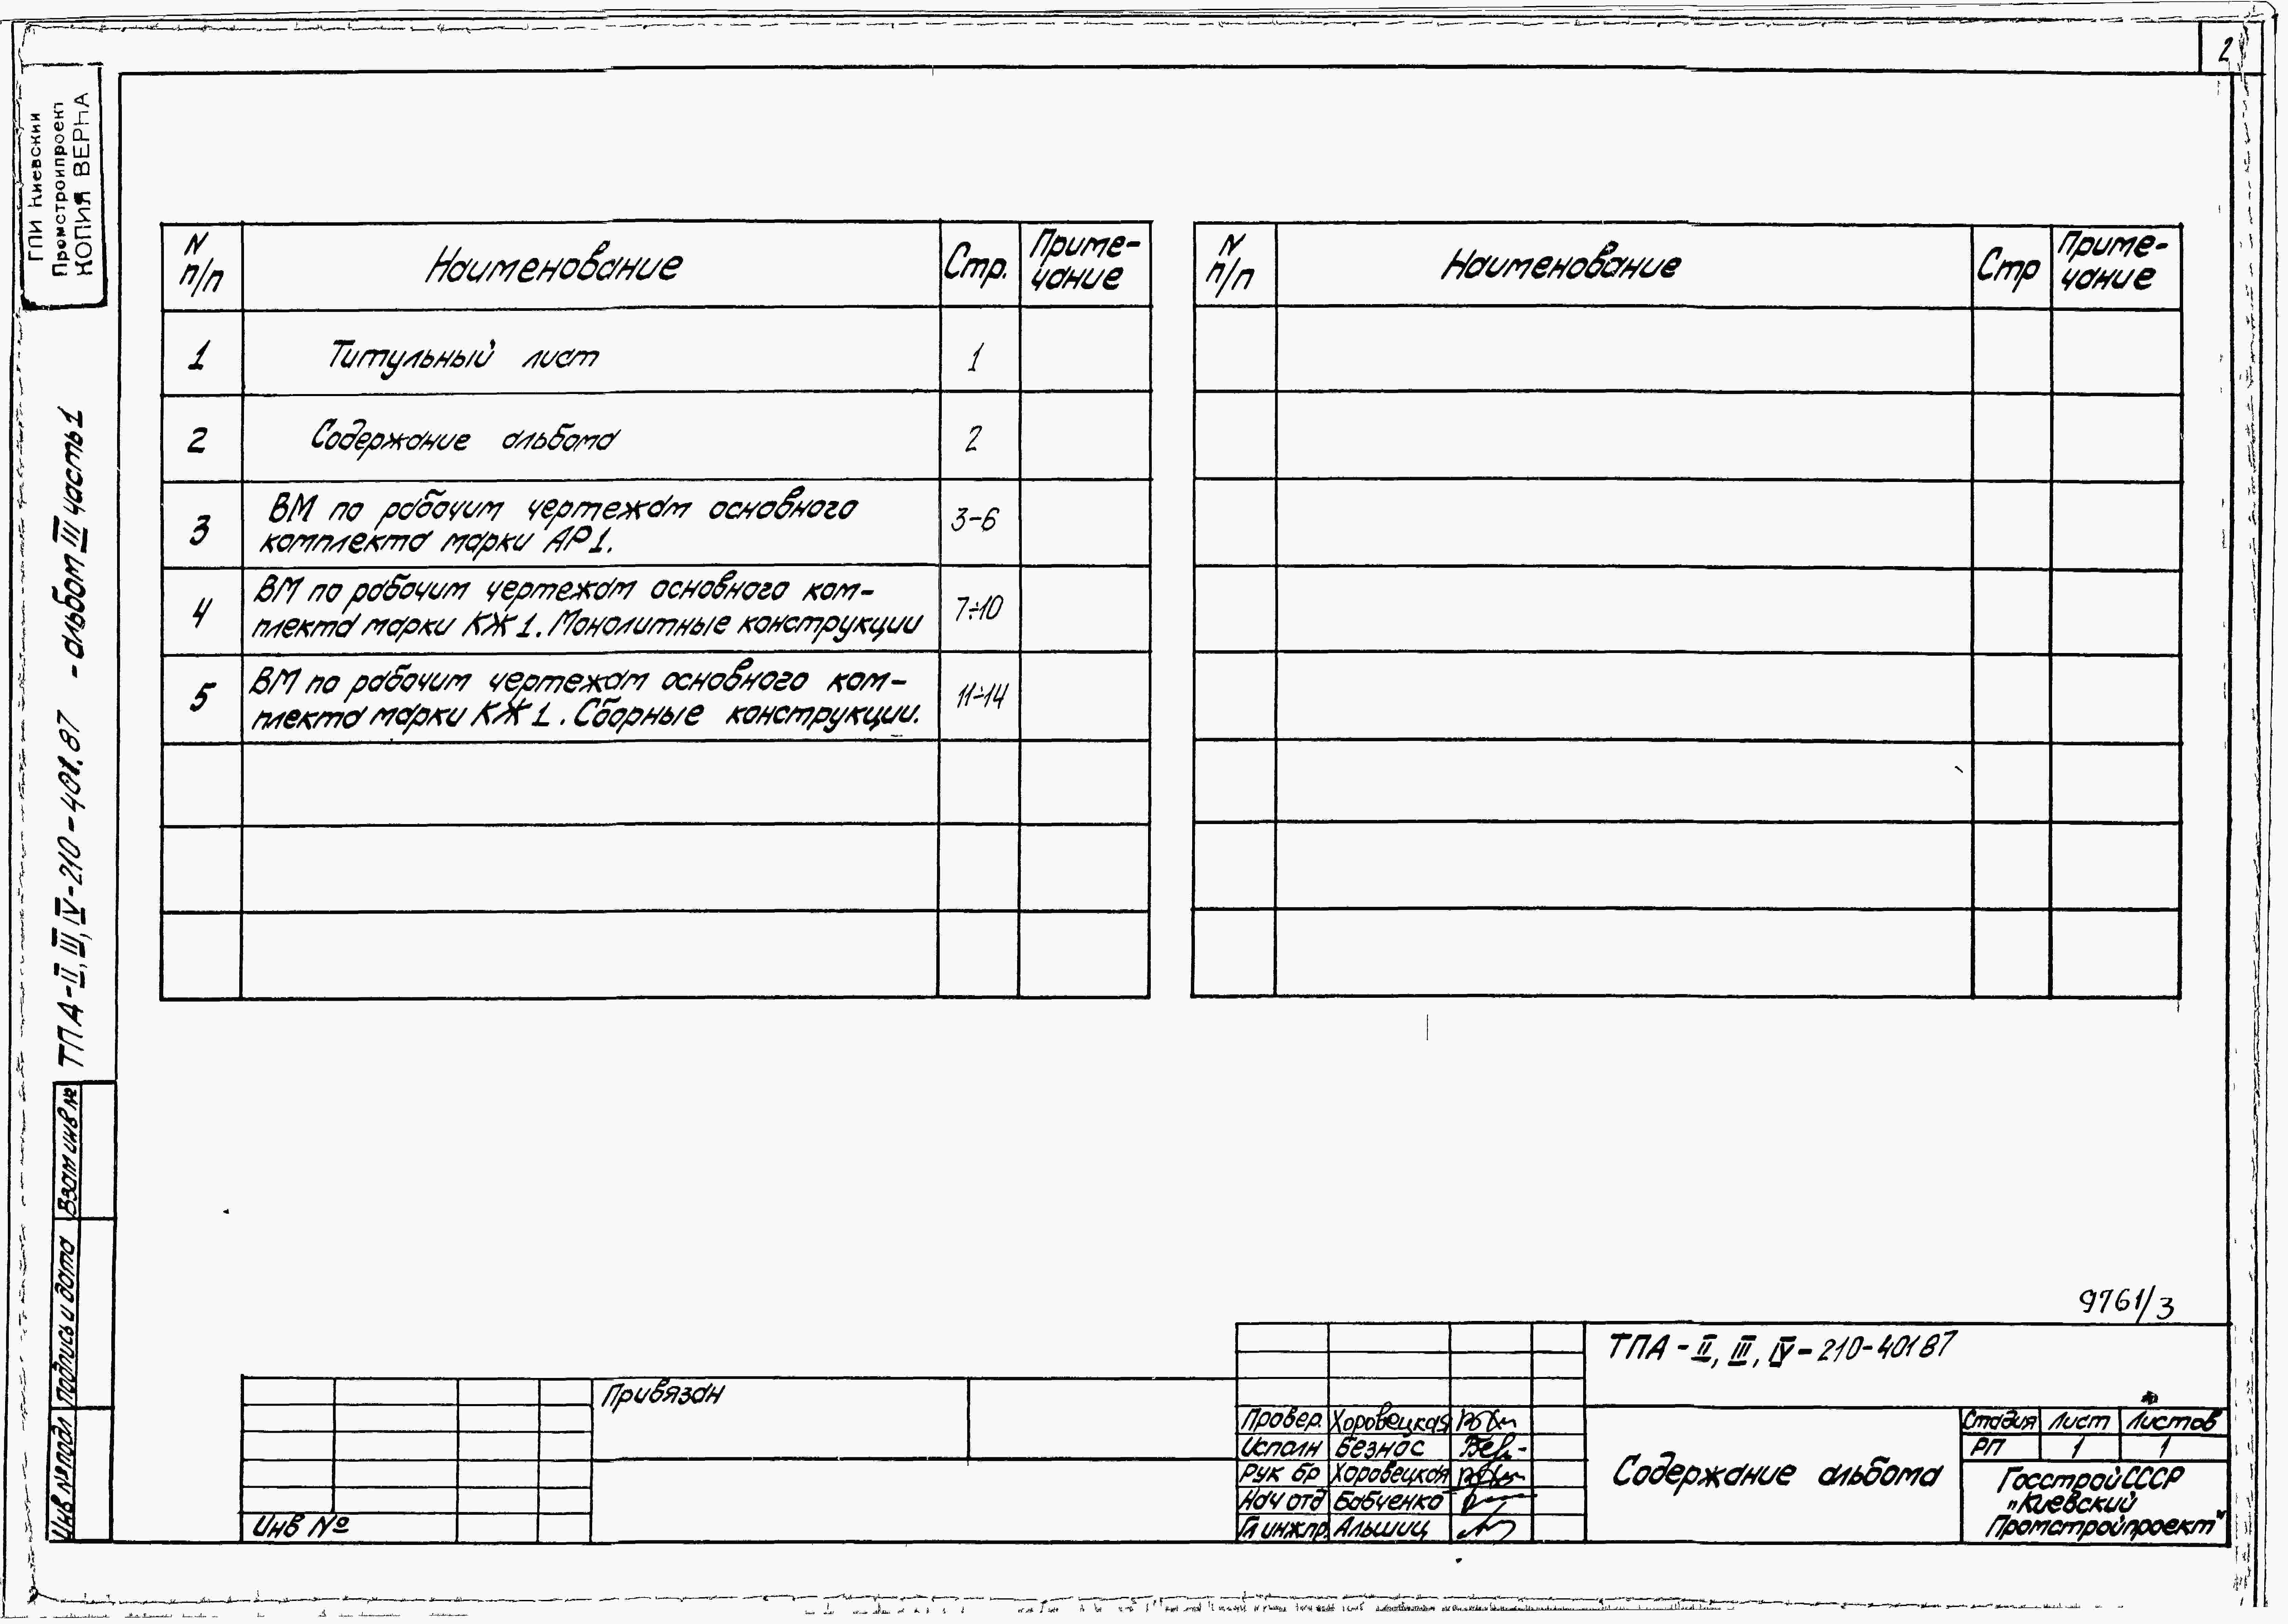 2
ГПИ Киевский
Промстройпроект
КОПИЯ ВЕРНА
ТПА-II, III, IV-210-401.87 - альбом III часть 1
N п/п Наименование Стр. Приме-
чание
1 Титульный лист 1
2 Содержание альбома 2
3 ВМ по рабочим чертежам основного
комплекта марки АР1. 3-6
4 ВМ по рабочим чертежам основного ком-
плекта марки КЖ1. Монолитные конструкции 7÷10
5 ВМ по рабочим чертежам основного ком-
плекта марки КЖ1. Сборные конструкции. 11÷14
N п/п Наименование Стр Приме-
чание
Взам инв №
Подпись и дата
Инв № подл
9761/3
Привязан
Инв №
ТПА - II, III, IV - 210-401 87
Провер. Хоровецкая
Исполн Безнос
Рук бр Хоровецкая
Нач отд Бабченко
Гл инж пр. Альшиц
Содержание альбома
Стадия Лист Листов
РП 1 1
Госстрой СССР
„Киевский
Промстройпроект"